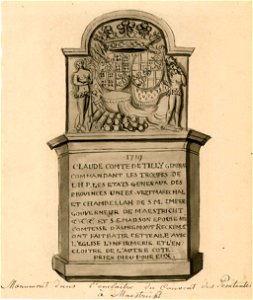 1719
CLAUDE COMTE DE TILLY GENERAL
COMMANDANT LES TROUPES DE
L.H.P. LES ETATS GENERAUX DES
PROVINCES UNIES VELTMARECHAL
ET CHAMBELLAN DE S.M. IMPER
GOUVERNEUR DE MAESTRICHT
&C &C &C ET S.E. MADSON EPOUSE NEE
COMTESSE D'ASPREMONT RECKEM
ONT FAIT BATIR CETTE AILE AVEC
L'EGLISE L'INFIRMERIE ET L'EN
CLOITRE DE L'AUTRE COTE
PRIES DIEU POUR EUX
Monument dans du Couvent des Penitentes
à Maestricht